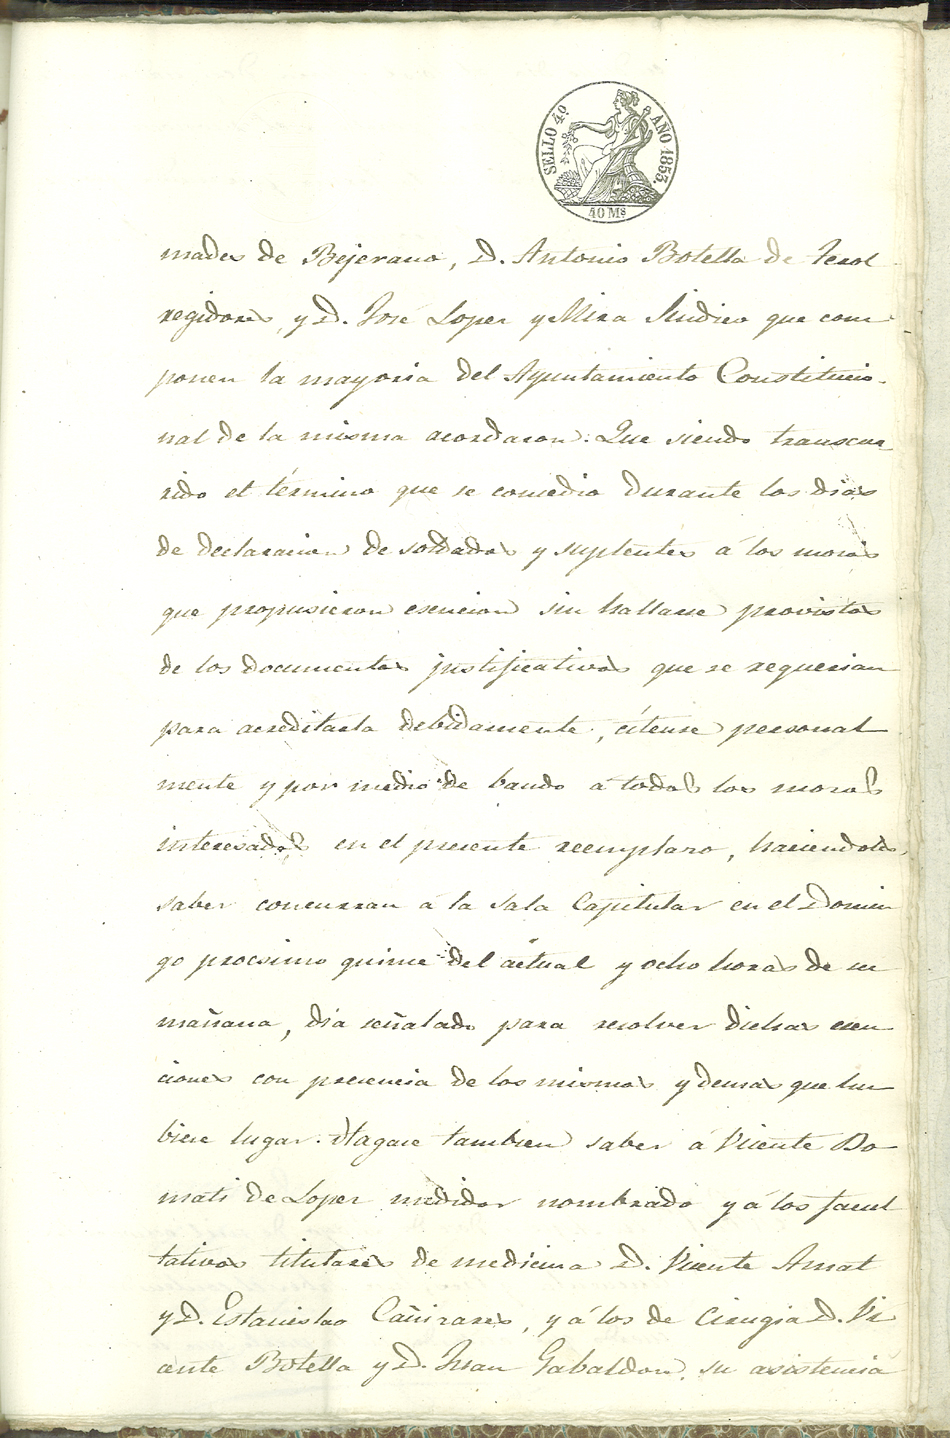 SELLO 4º AÑO 1853.
40 Mˢ
mades de Bejerano, D. Antonio Botella de Terol
regidores, y D. José Loper y Mira Sindico que com
ponen la mayoria del Ayuntamiento Constitucio-
nal de la misma acordaron: Que siendo transcur
rido el término que se comedio durante los dias
de declaracion de soldados y suplentes á los moros
que propusieron esencion sin hallarse provistos
de los documentos justificativos que se requerian
para acreditarla debidamente, citense personal
mente y por medio de bando á todos los moros
interesados en el presente reemplaro, haciendoles
saber concurran á la Sala Capitular en el Domin
go procsimo quince del actual y ocho horas de su
mañana, dia señalado para resolver dichas esen
ciones con presencia de los mismos y demas que hu
biere lugar. Hagase tambien saber á Vicente Do
mati de Loper medidor nombrado y á los facul
tativos titulares de medicina D. Vicente Amat
y D. Estanislao Cañirares, y á los de Cirugia D. Vi
cente Botella y D. Juan Gabaldon, su asistencia